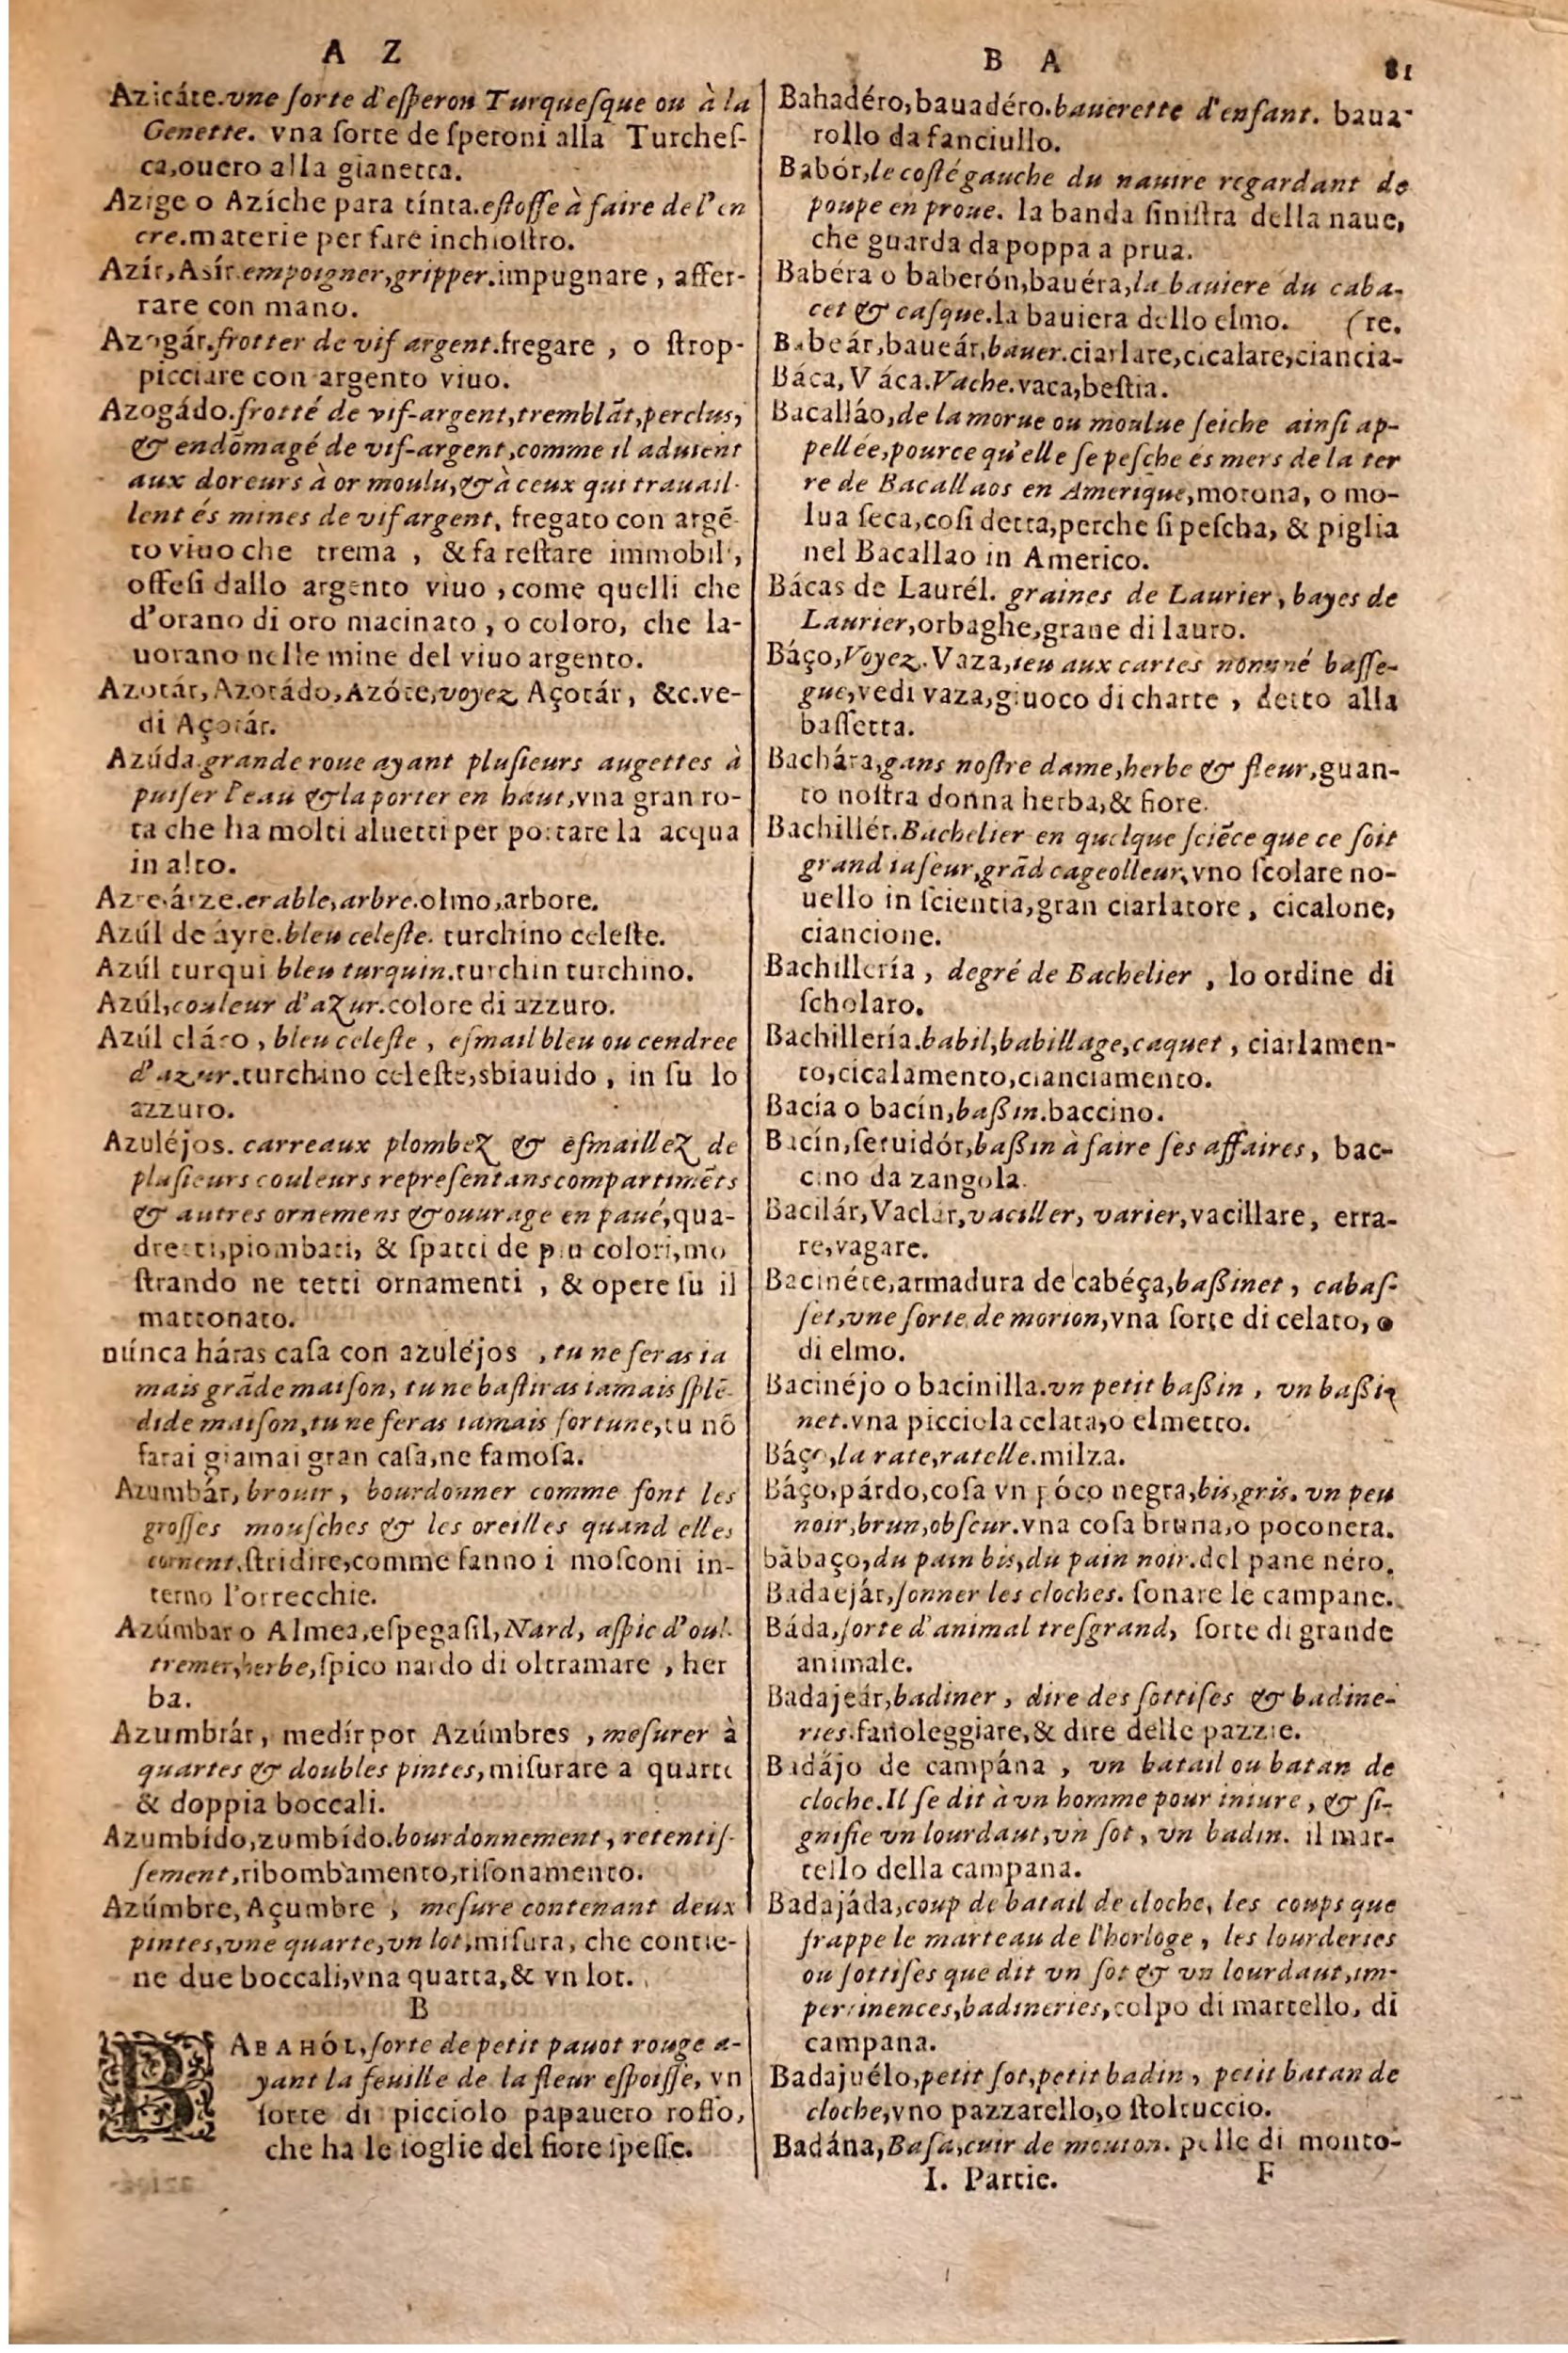 A Z
Azicáte.vne ſorte d'eſperon Turqueſque ou à la
Genette. vna ſorte de ſperoni alla Turcheſ-
ca,ouero alla gianetta.
Azige o Azíche para tínta.eſtoffe à faire de l'en
cre.materie per fare inchioſtro.
Azír,Asír.empoigner,gripper.impugnare , affer-
rare con mano.
Azogár.frotter de vif argent.fregare , o ſtrop-
picciare con argento viuo.
Azogádo.frotté de vif-argent,tremblãt,perclus,
& endõmagé de vif-argent,comme il aduient
aux doreurs à or moulu,& à ceux qui trauail-
lent és mines de vif argent, fregato con argē
to viuo che trema , & fa reſtare immobil,
offeſi dallo argento viuo , come quelli che
d'orano di oro macinato , o coloro, che la-
uorano nelle mine del viuo argento.
Azotár, Azotádo, Azóte, voyez Açotár, &c.ve-
di Açotár.
Azúda.grande roue ayant pluſieurs augettes à
puiſer l'eau & la porter en haut,vna gran ro-
ta che ha molti aluetti per portare la acqua
in alto.
erable,arbre.olmo,arbore.
Azúl de áyre.bleu celeſte. turchino celeſte.
Azúl turqui bleu turquin.turchin turchino.
Azúl,couleur d'azur.colore di azzuro.
Azúl cláro , bleu celeſte , eſmail bleu ou cendree
d'azur.turchino celeſte,sbiauido , in ſu lo
azzuro.
Azuléjos. carreaux plombez & eſmaillez de
pluſieurs couleurs repreſentans compartimẽts
& autres ornemens & ouurage en paué,qua-
dretti,piombati, & ſpatti de piu colori,mo
ſtrando ne tetti ornamenti , & opere ſu il
mattonato.
núnca háras caſa con azuléjos , tu ne feras ia
mais grãde maiſon, tu ne baſtiras iamais ſplẽ-
dide maiſon,tu ne feras iamais fortune,tu nõ
farai giamai gran caſa,ne famoſa.
Azumbár, brouir , bourdonner comme font les
groſſes mouſches & les oreilles quand elles
cornent.ſtridire,comme fanno i moſconi in-
terno l'orrecchie.
Azúmbar o Almea,eſpegaſil,Nard, aſpic d'oul-
tremer,herbe,ſpico nardo di oltramare , her
ba.
Azumbrár, medír por Azúmbres , meſurer à
quartes & doubles pintes,miſurare a quarte
& doppia boccali.
Azumbído,zumbído.bourdonnement, retentiſ-
ſement,ribombamento,riſonamento.
Azúmbre, Açumbre , meſure contenant deux
pintes,vne quarte,vn lot,miſura, che contie-
ne due boccali,vna quarta,& vn lot.
B
BABAHÓL,ſorte de petit pauot rouge a-
yant la feuille de la fleur eſpoiſſe, vn
ſorte di picciolo papauero roſſo,
che ha le foglie del fiore ſpeſſe.
B A 81
Bahadéro,bauadéro.bauerette d'enfant. baua-
rollo da fanciullo.
Babór,le coſté gauche du nauire regardant de
poupe en proue. la banda ſiniſtra della naue,
che guarda da poppa a prua.
Babéra o baberón,bauéra,la bauiere du caba-
cet & caſque.la bauiera dello elmo. (re.
Babeár,baueár,bauer.ciarlare,cicalare,ciancia-
Báca, Váca.Vache.vaca,beſtia.
Bacalláo,de la morue ou moulue ſeiche ainſi ap-
pellée,pource qu'elle ſe peſche és mers de la ter
re de Bacallaos en Amerique,morona, o mo-
lua ſeca,coſi detta,perche ſi peſcha, & piglia
nel Bacallao in Americo.
Bácas de Laurél. graines de Laurier, bayes de
Laurier,orbaghe,grane di lauro.
Báço,Voyez.Vaza,ieu aux cartes nommé baſſe-
gue,vedi vaza,giuoco di charte , detto alla
baſſetta.
Bachára,gans noſtre dame,herbe & fleur,guan-
to noſtra donna herba,& fiore.
Bachillér.Bachelier en quelque ſciẽce que ce ſoit
grand iaſeur,grãd cageolleur,vno ſcolare no-
uello in ſcientia,gran ciarlatore , cicalone,
ciancione.
Bachillería , degré de Bachelier , lo ordine di
ſcholaro.
Bachillería.babil,babillage,caquet , ciarlamen-
to,cicalamento,cianciamento.
Bacía o bacín,baßin.baccino.
Bacín,ſeruidór,baßin à faire ſes affaires, bac-
cino da zangola.
Bacilár, Vaclar,vaciller, varier,vacillare, erra-
re,vagare.
Bacinéte,armadura de cabéça,baßinet , cabaſ-
ſet,vne ſorte de morion,vna ſorte di celato, o
di elmo.
Bacinéjo o bacinilla.vn petit baßin , vn baßi
net.vna picciola celata,o elmetto.
Báço,la rate,ratelle.milza.
Báço,párdo,coſa vn póco negra,bis,gris. vn peu
noir,brun,obſcur.vna coſa bruna,o poconera.
bàbaço,du pain bis,du pain noir.del pane néro.
Badaejár,ſonner les cloches. ſonare le campane.
Báda,ſorte d'animal treſgrand, ſorte di grande
animale.
Badajeár,badiner , dire des ſottiſes & badine-
ries.fanoleggiare,& dire delle pazzie.
Badájo de campána , vn batail ou batan de
cloche.Il ſe dit à vn homme pour iniure , & ſi-
gnifie vn lourdaut,vn ſot , vn badin. il mar-
tello della campana.
Badajáda,coup de batail de cloche, les coups que
frappe le marteau de l'horloge , les lourderies
ou ſottiſes que dit vn ſot & vn lourdaut,im-
pertinences,badineries,colpo di martello, di
campana.
Badajuélo,petit ſot,petit badin , petit batan de
cloche,vno pazzarello,o ſtoltuccio.
Badána,Baſa,cuir de mouton. pelle di monto-
I. Partie. F